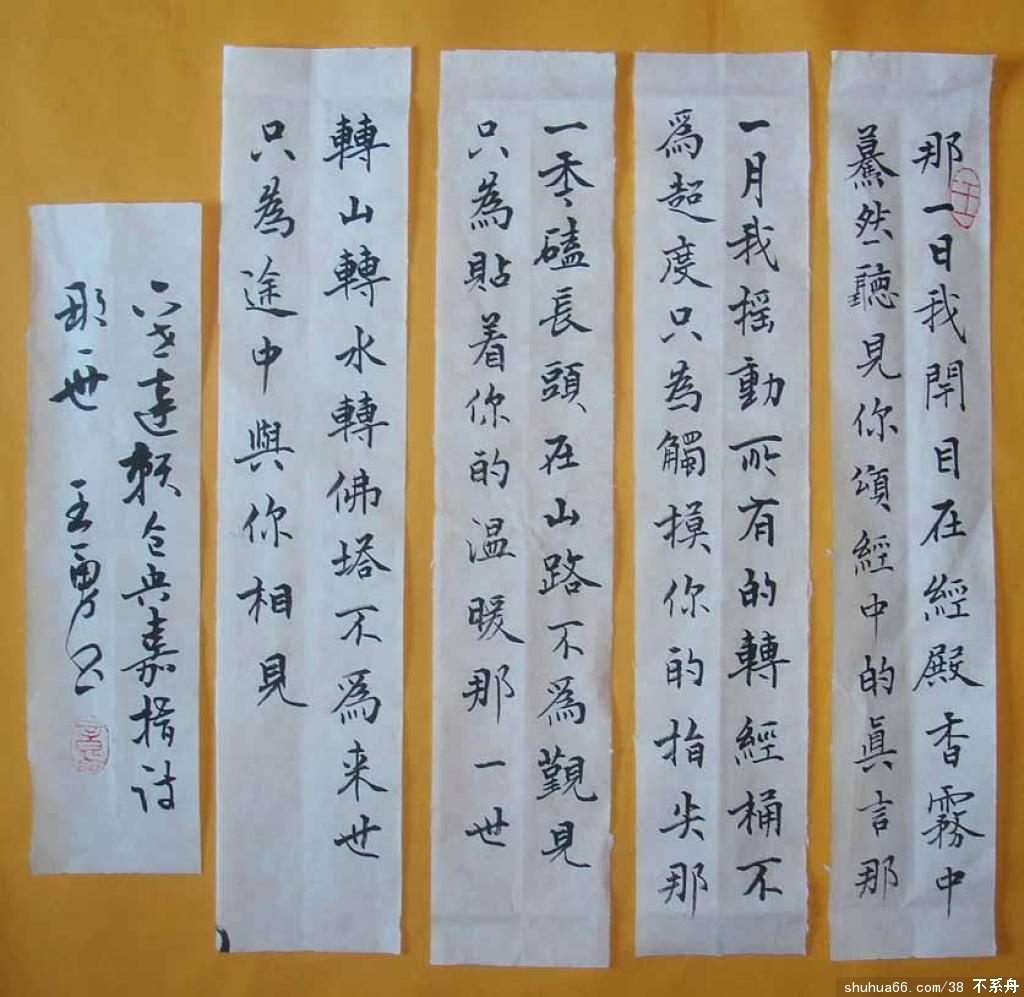 那一日我閉目在經殿香霧中
驀然聽見你頌經中的眞言那
一月我摇動所有的轉經桶不
爲超度只為觸摸你的指尖那
一年磕長頭在山路不爲覲見
只為貼着你的温暖那一世
轉山轉水轉佛塔不爲来世
只為途中與你相見
六世達賴仓央嘉措诗
那一世 王勇书
shuhua66.com/38 不系舟